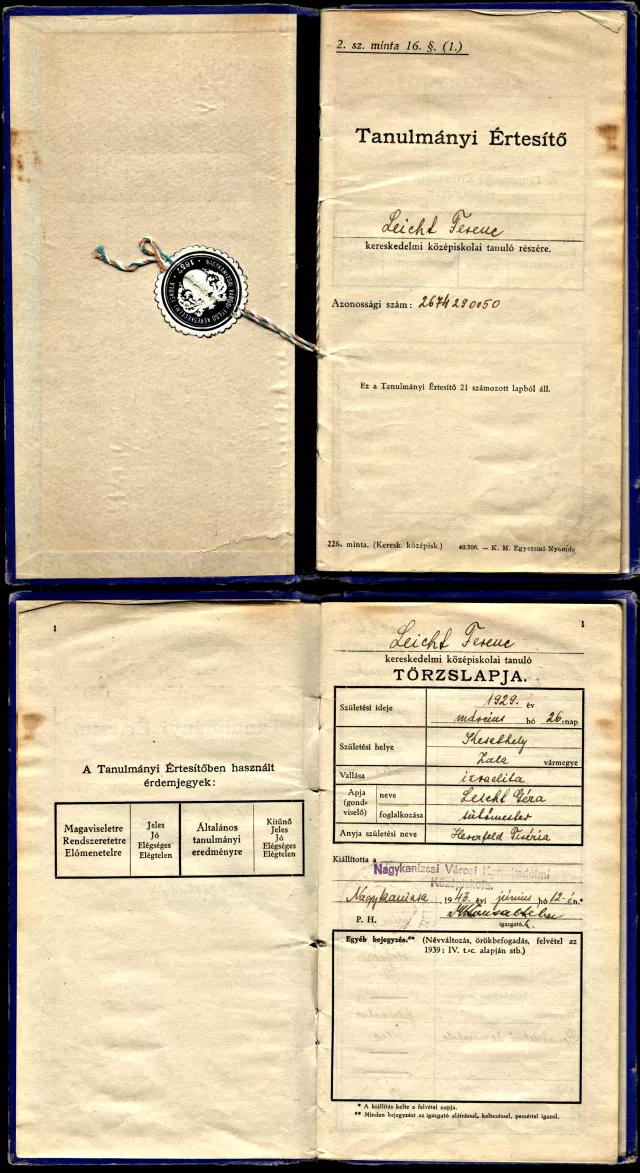 2. sz. minta 16. §. (1.)
Tanulmányi Értesítő
Leicht Ferenc
kereskedelmi középiskolai tanuló részére.
Azonossági szám: 2674290050
NAGYKANIZSAI VÁROSI FELSŐ KERESKEDELMI ISKOLA · 1857 ·
Ez a Tanulmányi Értesítő 21 számozott lapból áll.
226. minta. (Keresk. középisk.) 40.306. — K. M. Egyetemi Nyomda
1
A Tanulmányi Értesítőben használt
érdemjegyek:
Magaviseletre
Rendszeretetre
Előmenetelre
Jeles
Jó
Elégséges
Elégtelen
Általános
tanulmányi
eredményre
Kitünő
Jeles
Jó
Elégséges
Elégtelen
1
Leicht Ferenc
kereskedelmi középiskolai tanuló
TÖRZSLAPJA.
Születési ideje 1929. év
március hó 26. nap
Születési helye Keszthely
Zala vármegye
Vallása izraelita
Apja (gondviselő) neve Leicht Géza
foglalkozása sütőmester
Anyja születési neve Herzfeld Piséria
Kiállította a
Nagykanizsai Városi Kereskedelmi
Középiskola.
Nagykanizsa, 1943. évi június hó 12-én.*
P. H.
igazgató.h.
Egyéb bejegyzés.** (Névváltozás, örökbefogadás, felvétel az
1939: IV. t.-c. alapján stb.)
* A kiállítás kelte a felvétel napja.
** Minden bejegyzést az igazgató aláírással, keltezéssel, pecséttel igazol.